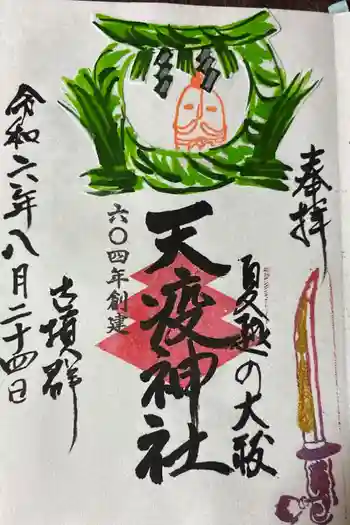 奉拝
夏越の大祓
天疫神社
六〇四年創建
古墳群
令和六年八月二十四日